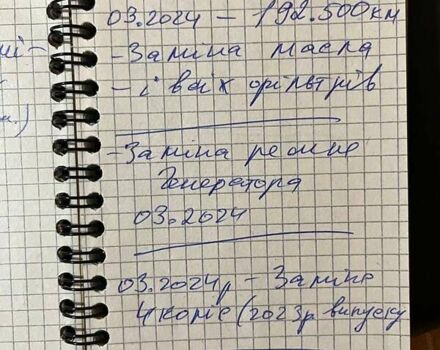 ні-
н.)
03.2024 - 192.500км
- Заміна масла
- і всіх фільтрів
- Заміна ремня
Генератора
03.2024
03.2024р - Заміна
4 коліс (2023р випуску